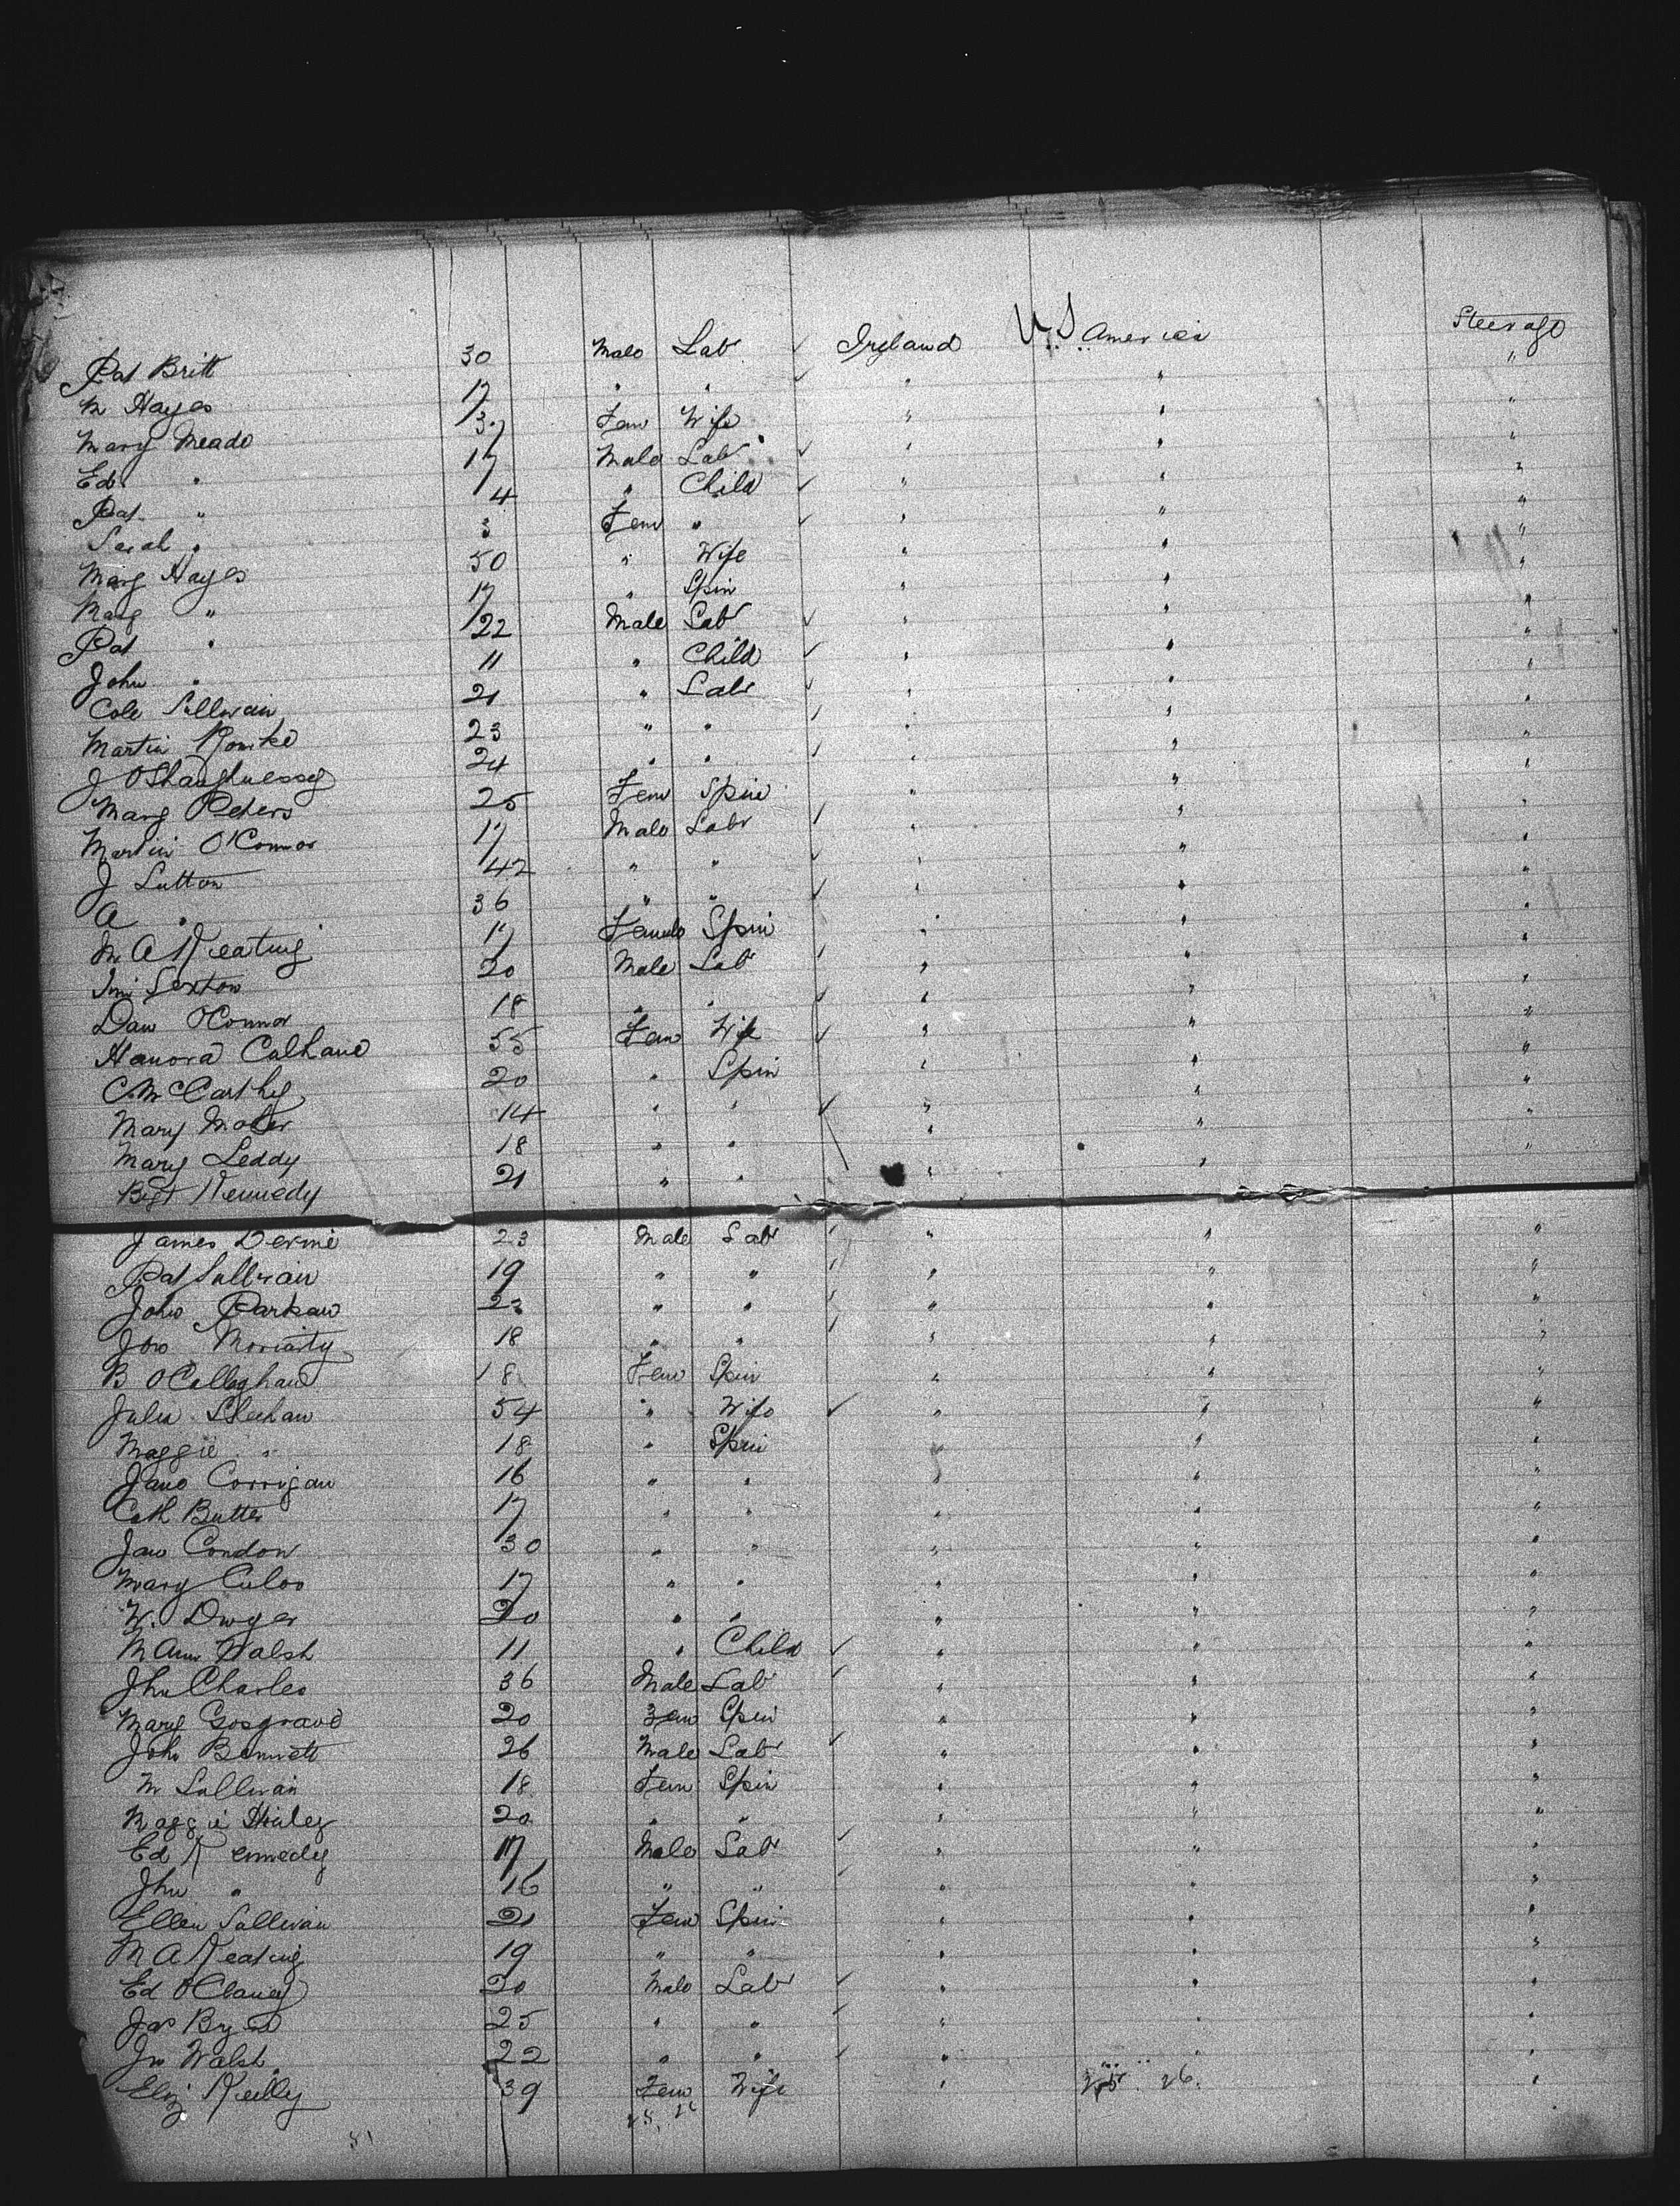 Pat Britt 30 Male Lab ✓ Ireland U.S. America Steerage
M Hayes 17 " " ✓ " " "
Mary Meade 37 Fem Wife " " "
Ed " 17 Male Lab ✓ " " "
Pat " 4 " Child ✓ " " "
Sarah " 3 Fem " ✓ " " "
Marg Hayes 50 " Wife " " "
Marg " 17 " Spin " " "
Pat " 22 Male Lab ✓ " " "
John " 11 " Child ✓ " " "
Cole Sullivan 21 " Lab ✓ " " "
Martin 23 " " ✓ " " "
J OShaughnessy 24 " " ✓ " " "
Marg Peters 25 Fem Spin " " "
Martin O'Connor 17 Male Lab ✓ " " "
J Sutton 42 " " ✓ " " "
A " 36 " " ✓ " " "
M A Keating 17 Female Spin " " "
Sexton 20 Male Lab ✓ " " "
Dan OConnor 18 " " ✓ " " "
Hanora Calhane 55 Fem Wife ✓ " " "
C McCarthy 20 " Spin " " "
Mary 14 " " ✓ " " "
Mary Leddy 18 " " " " "
Bigt Kennedy 21 " " " " "
James 23 Male Lab ✓ " " "
Pat Sullivan 19 " " ✓ " " "
John 23 " " ✓ " " "
Jno Moriarty 18 " " ✓ " " "
B OCallaghan 18 Fem Spin " " "
Julia Sheehan 54 " Wife ✓ " " "
Maggie " 18 " Spin " " "
Jane Corrigan 16 " " " " "
Cath Butler 17 " " " " "
Jane Condon 30 " " " " "
Mary 17 " " " " "
W. Dwyer 20 " " " " "
M Ann Walsh 11 " Child ✓ " " "
Jhn Charles 36 Male Lab ✓ " " "
Mary Cosgrave 20 Fem Spin " " "
John Bennett 26 Male Lab ✓ " " "
M Sullivan 18 Fem Spin " " "
Maggie 20 " " " " "
Ed Kennedy 17 Male Lab ✓ " " "
Jhn " 16 " " ✓ " " "
Ellen Sullivan 21 Fem Spin " " "
M A Keating 19 " " " " "
Ed OClancy 20 Male Lab ✓ " " "
Jas Byrne 25 " " ✓ " " "
Jno Walsh 22 " " ✓ " " "
Eliz Reilly 39 Fem Wife " 25. 26. "
25. 26
51